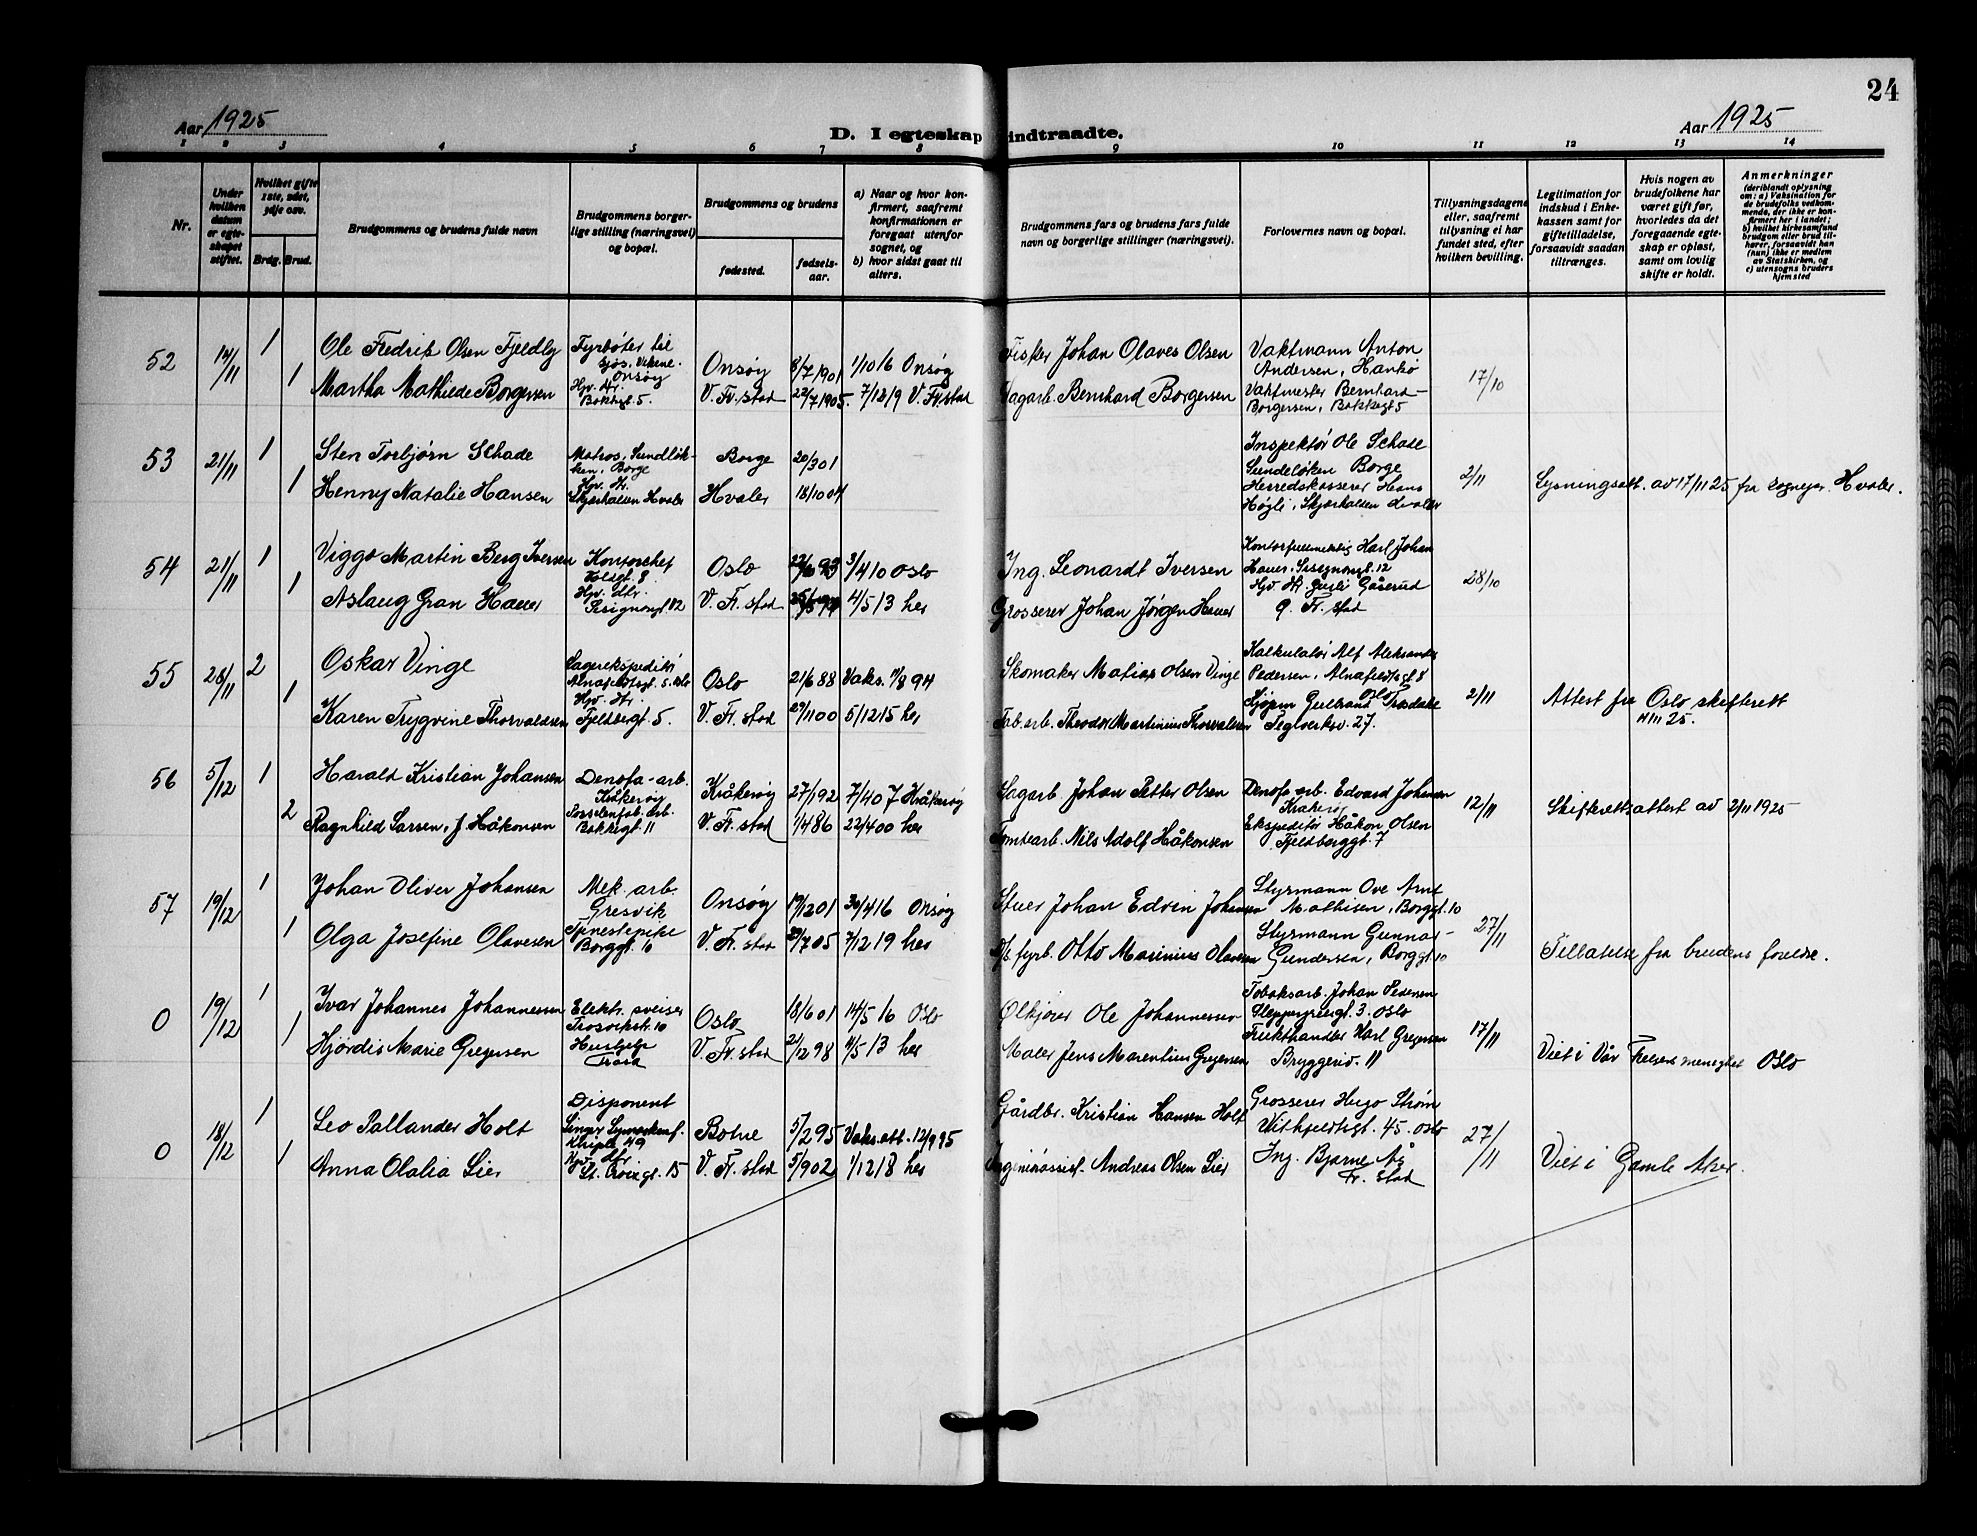 24
Aar 1925
D. I egteskap indtraadte.
Aar 1925
1 2 3 4 5 6 7 8 9 10 11 12 13 14
Nr.
Under hvilken datum er egteskapet stiftet.
Hvilket gifte 1ste, 2det, 3dje osv.
Brdg. Brud.
Brudgommens og brudens fulde navn
Brudgommens borgerlige stilling (næringsvei) og bopæl.
Brudgommens og brudens
fødested.
fødselsaar.
a) Naar og hvor konfirmert, saafremt konfirmationen er foregaat utenfor sognet, og
b) hvor sidst gaat til alters.
Brudgommens fars og brudens fars fulde navn og borgerlige stillinger (næringsvei).
Forlovernes navn og bopæl.
Tillysningsdagene eller, saafremt tillysning ei har fundet sted, efter hvilken bevilling.
Legitimation for indskud i Enkekassen samt for giftetilladelse, forsaavidt saadan tiltrænges.
Hvis nogen av brudefolkene har været gift før, hvorledes da det foregaaende egteskap er opløst, samt om lovlig skifte er holdt.
Anmerkninger
(deriblandt oplysning om: a) Vaksination for de brudefolks vedkommende, der ikke er konfirmert her i landet; b) hvilket kirkesamfund brudgom eller brud tilhører, forsaavidt han (hun) ikke er medlem av Statskirken, og c) utensogns bruders hjemsted
52 14/11 1 Ole Fredrik Olsen Fjeldly
Fyrbøter til sjøs, Vikene Onsøy
Onsøy 8/7 1901 1/10 16 Onsøy
Fisker Johan Olaves Olsen
Vaktmann Anton Andersen, Hankø
17/10
1 Martha Mathilde Borgersen
Hjv. dtr. Bakkegt. 5.
V. Fr.stad 22/7 1905. 7/12 19 V. Fr.stad
Sagarb. Bernhard Borgersen
Vaktmester Bernhard Borgersen, Bakkegt 5
53 21/11 1 Sten Torbjørn Schade
Matros, Sundløkken, Borge
Borge 20/3 01
Inspektør Ole Schade Sundeløken Borge
2/11
Lysningsatt. av 17/11 25 fra sognepr. Hvaler.
1 Henny Natalie Hansen
Hjv. dtr. Skjærhalden Hvaler
Hvaler 18/10 04
Herredskasserer Hans Høgli, Skjærhalden Hvaler
54 21/11 1 Viggo Martin Berg Iversen
Kontorchef Holdsgt. 8
Oslo 22/6 93 3/4 10 Oslo
Ing. Leonardt Iversen
Kontorfullmektig Karl Johan Hauer, 12
28/10
1 Aslaug Gran Hauer
Hjv. dtr. 12
V. Fr.stad 4/5 13 her
Grosserer Johan Jørgen Hauer
Gårerud
Fr. stad
55 28/11 2 Oskar Vinge
Lagerekspeditør Alnafetgt. 8. Oslo
Oslo 21/6 88 Vaks. 11/8 94
Skomaker Matias Olsen Vinge
Kalkulatør Alf Aleksander Pedersen, Alnafetgt 8 Oslo
2/11
Attest fra Oslo skifterett 4/11 25.
1 Karen Trygvine Thorvaldsen
Hjv. dtr. Fjeldbergt. 5.
V. Fr. stad 27/11 00 5/12 15 her
Fab. arb. Theodor Martinius Thorvaldsen
Teglverksv. 27.
56 5/12 1 Harald Kristian Johansen
Denofa-arb. Kråkerøy
Kråkerøy 27/1 92 7/4 07 Kråkerøy
Sagarb Johan Petter Olsen
Denofa arb. Edvard Johansen Kråkerøy
12/11
Skifterettsattest av 2/11 1925
2 Ragnhild Larsen, f. Håkonsen
Bakkegt 11
V. Fr. stad 1/4 86 22/4 00 her
Tomtearb. Nils Adolf Håkonsen
Ekspeditør Håkon Olsen Fjeldberggt. 7
57 19/12 1 Johan Oliver Johansen
Mek. arb. Gresvik
Onsøy 19/12 01 30/4 16 Onsøy
Stuer Johan Edvin Johansen
Styrmann Ove Arne Mathisen, Borggt. 10
27/11
Tillatelse fra brudens foreldre.
1 Olga Josefine Olavesen
Tjenestepike Borggt. 10
V. Fr. stad 29/7 05 7/12 19 her
fyrb. Otto Marinius Olavesen
Styrmann Gunnar Gundersen, Borggt 10
0 19/12 1 Ivar Johannes Johannessen
Elektr. sveiser
Oslo 18/6 01 14/5 16 Oslo
Ølkjører Ole Johannessen
Tobaksarb. Johan Pedersen 3. Oslo
17/11
Viet i Vår Frelsers menighet Oslo
1 Hjørdis Marie Gregersen
Hushjelp
V. Fr. stad 2/12 98 4/5 13 her
Maler Jens Marentius Gregersen
Frukthandler Karl Gregersen Bryggeriv. 11
0 18/12 1 Leo Pallander Holt
Disponent Singer Symaskinf.
Botne 5/2 95 Vaks. att. 12/9 95
Gårdbr. Kristian Hansen Holt
Grosserer Hugo Strøm Vithfeldtsgt. 45. Oslo
27/11
Viet i Gamle Aker.
1 Anna Olalia Lier
Hjv. dtr. 15
V. Fr. stad 5/9 02 1/12 18 her
Andreas Olsen Lier
Ing. Bjarne Aÿ Fr. stad